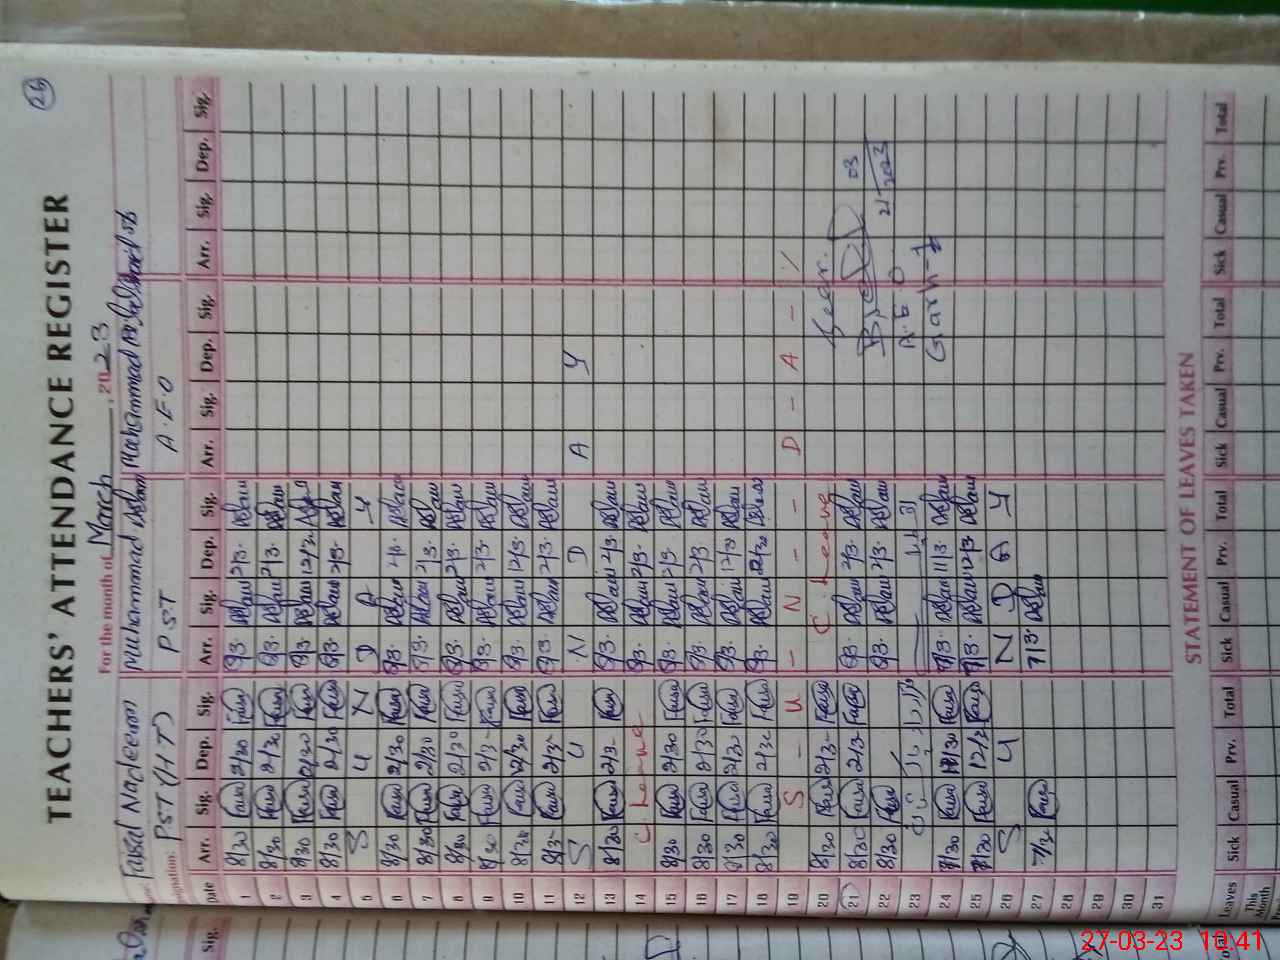 26
TEACHERS' ATTENDANCE REGISTER
For the month of March, 2023
Faisal Nadeem Muhammad Aslam Mohammad
Designation: PST (HT) PST A.E.O
Date Arr. Sig. Dep. Sig. Arr. Sig. Dep. Sig. Arr. Sig. Dep. Sig. Arr. Sig. Dep. Sig.
1 8/30 Faisal 2/30 Faisal 8/3. Aslam 2/3. Aslam
2 8/30 Faisal 2/30 Faisal 8/3. Aslam 2/3. Aslam
3 8/30 Faisal 12/30 Faisal 8/3. Aslam 12/3. Aslam
4 8/30 Faisal 2/30 Faisal 8/3. Aslam 2/3. Aslam
5 S U N D A Y
6 8/30 Faisal 2/30 Faisal 8/3. Aslam 2/3. Aslam
7 8/30 Faisal 2/30 Faisal 8/3. Aslam 2/3. Aslam
8 8/30 Faisal 2/30 Faisal 8/3. Aslam 2/3. Aslam
9 8/30 Faisal 2/3- Faisal 8/3. Aslam 2/3. Aslam
10 8/30 Faisal 12/30 Faisal 8/3. Aslam 12/3. Aslam
11 8/3- Faisal 2/3- Faisal 8/3. Aslam 2/3. Aslam
12 S U N D A Y
13 8/30 Faisal 2/3- Faisal 8/3. Aslam 2/3. Aslam
14 C. Leave 8/3. Aslam 2/3. Aslam
15 8/30 Faisal 2/30 Faisal 8/3. Aslam 2/3. Aslam
16 8/30 Faisal 2/30 Faisal 8/3. Aslam 2/3. Aslam
17 8/30 Faisal 12/30 Faisal 8/3. Aslam 12/30 Aslam
18 8/30 Faisal 2/30 Faisal 8/3. Aslam 2/30 Aslam
19 S - U - N - D - A - Y
20 8/30 Faisal 2/3- Faisal C. Leave Seen.
21 8/30 Faisal 2/3- Faisal 8/3. Aslam 2/3. Aslam 03
22 8/30 Faisal 8/3. Aslam 2/3. Aslam A.E.O 21/2023
23 Garh-I
24 7/30 Faisal 11/30 Faisal 7/3. Aslam 11/3. Aslam
25 7/30 Faisal 12/3 Faisal 7/3. Aslam 12/3 Aslam
26 S U N D A Y
27 7/30 Faisal 7/3. Aslam
28
29
30
31
STATEMENT OF LEAVES TAKEN
Leaves Sick Casual Prv. Total Sick Casual Prv. Total Sick Casual Prv. Total Sick Casual Prv. Total
This Month
Sig.
Total
27-03-23 10:41